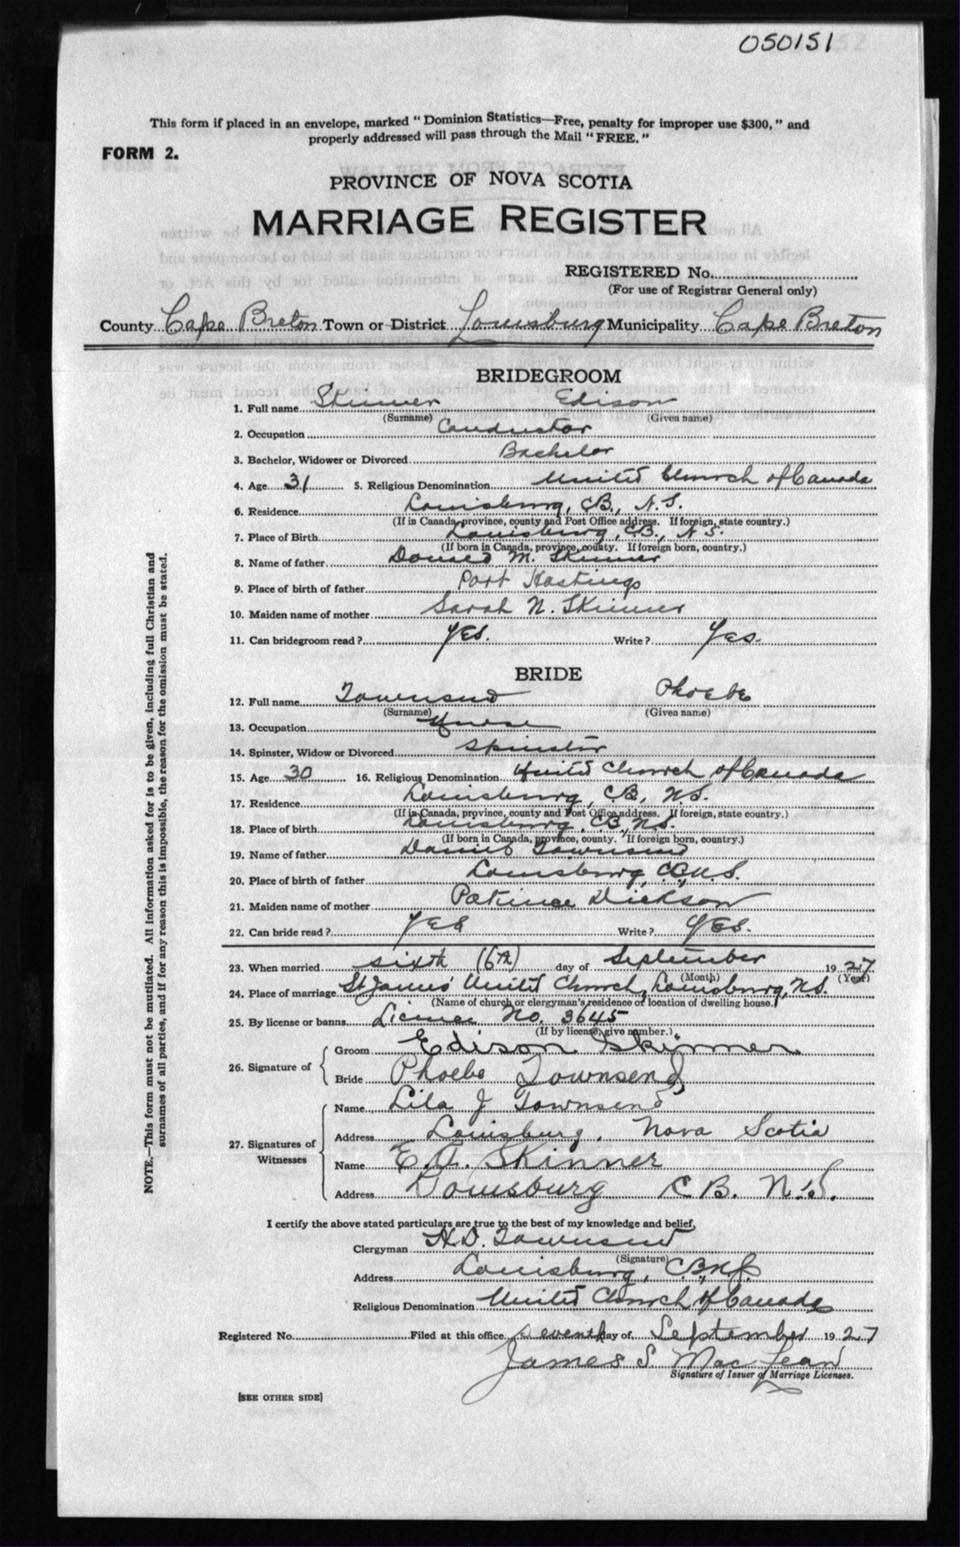 050151
This form if placed in an envelope, marked "Dominion Statistics—Free, penalty for improper use $300," and
properly addressed will pass through the Mail "FREE."
FORM 2.
PROVINCE OF NOVA SCOTIA
MARRIAGE REGISTER
REGISTERED No.
(For use of Registrar General only)
County Cape Breton Town or District Louisburg Municipality Cape Breton
BRIDEGROOM
1. Full name Skinner Edison
(Surname) (Given name)
2. Occupation Conductor
3. Bachelor, Widower or Divorced Bachelor
4. Age 31 5. Religious Denomination United Church of Canada
6. Residence Louisburg, C.B., N.S.
(If in Canada, province, county and Post Office address. If foreign, state country.)
7. Place of Birth Louisburg, C.B., N.S.
(If born in Canada, province, county. If foreign born, country.)
8. Name of father Donald M. Skinner
9. Place of birth of father Port Hastings
10. Maiden name of mother Sarah N. Skinner
11. Can bridegroom read? Yes. Write? Yes.
BRIDE
12. Full name Townsend Phoebe
(Surname) (Given name)
13. Occupation Nurse
14. Spinster, Widow or Divorced Spinster
15. Age 30 16. Religious Denomination United Church of Canada
17. Residence Louisburg, C.B., N.S.
(If in Canada, province, county and Post Office address. If foreign, state country.)
18. Place of birth Louisburg, C.B., N.S.
(If born in Canada, province, county. If foreign born, country.)
19. Name of father Townsend
20. Place of birth of father Louisburg, C.B., N.S.
21. Maiden name of mother Patience Dickson
22. Can bride read? Yes Write? Yes.
23. When married sixth (6th) day of September 1927
(Month) (Year)
24. Place of marriage St James' United Church, Louisburg, N.S.
(Name of church or clergyman's residence or location of dwelling house.)
25. By license or banns License No. 3645
(If by license, give number.)
26. Signature of
Groom Edison Skinner
Bride Phoebe Townsend
27. Signatures of Witnesses
Name Lila J Townsend
Address Louisburg, Nova Scotia
Name E.A. Skinner
Address Louisburg C B. N.S.
I certify the above stated particulars are true to the best of my knowledge and belief.
Clergyman H.D. Townsend
(Signature)
Address Louisburg, C.B. N.S.
Religious Denomination United Church of Canada
Registered No. Filed at this office seventh day of September 1927
James S. MacLean
Signature of Issuer of Marriage Licenses.
[SEE OTHER SIDE]
NOTE.—This form must not be mutilated. All information asked for is to be given, including full Christian and
surnames of all parties, and if for any reason this is impossible, the reason for the omission must be stated.